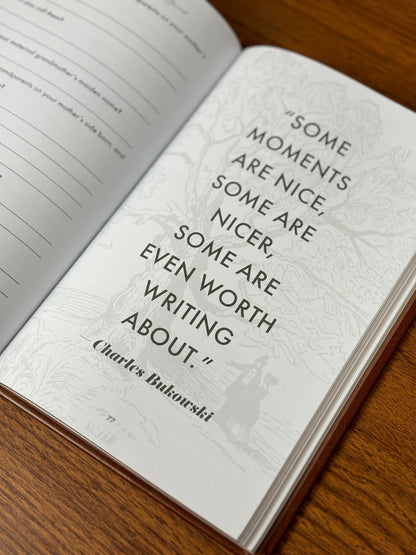 parents on your mother's
you call them?
your maternal grandmother's maiden name?
grandparents on your mother's side born, and
"SOME
MOMENTS
ARE NICE,
SOME ARE
NICER,
SOME ARE
EVEN WORTH
WRITING
ABOUT."
Charles Bukowski
77